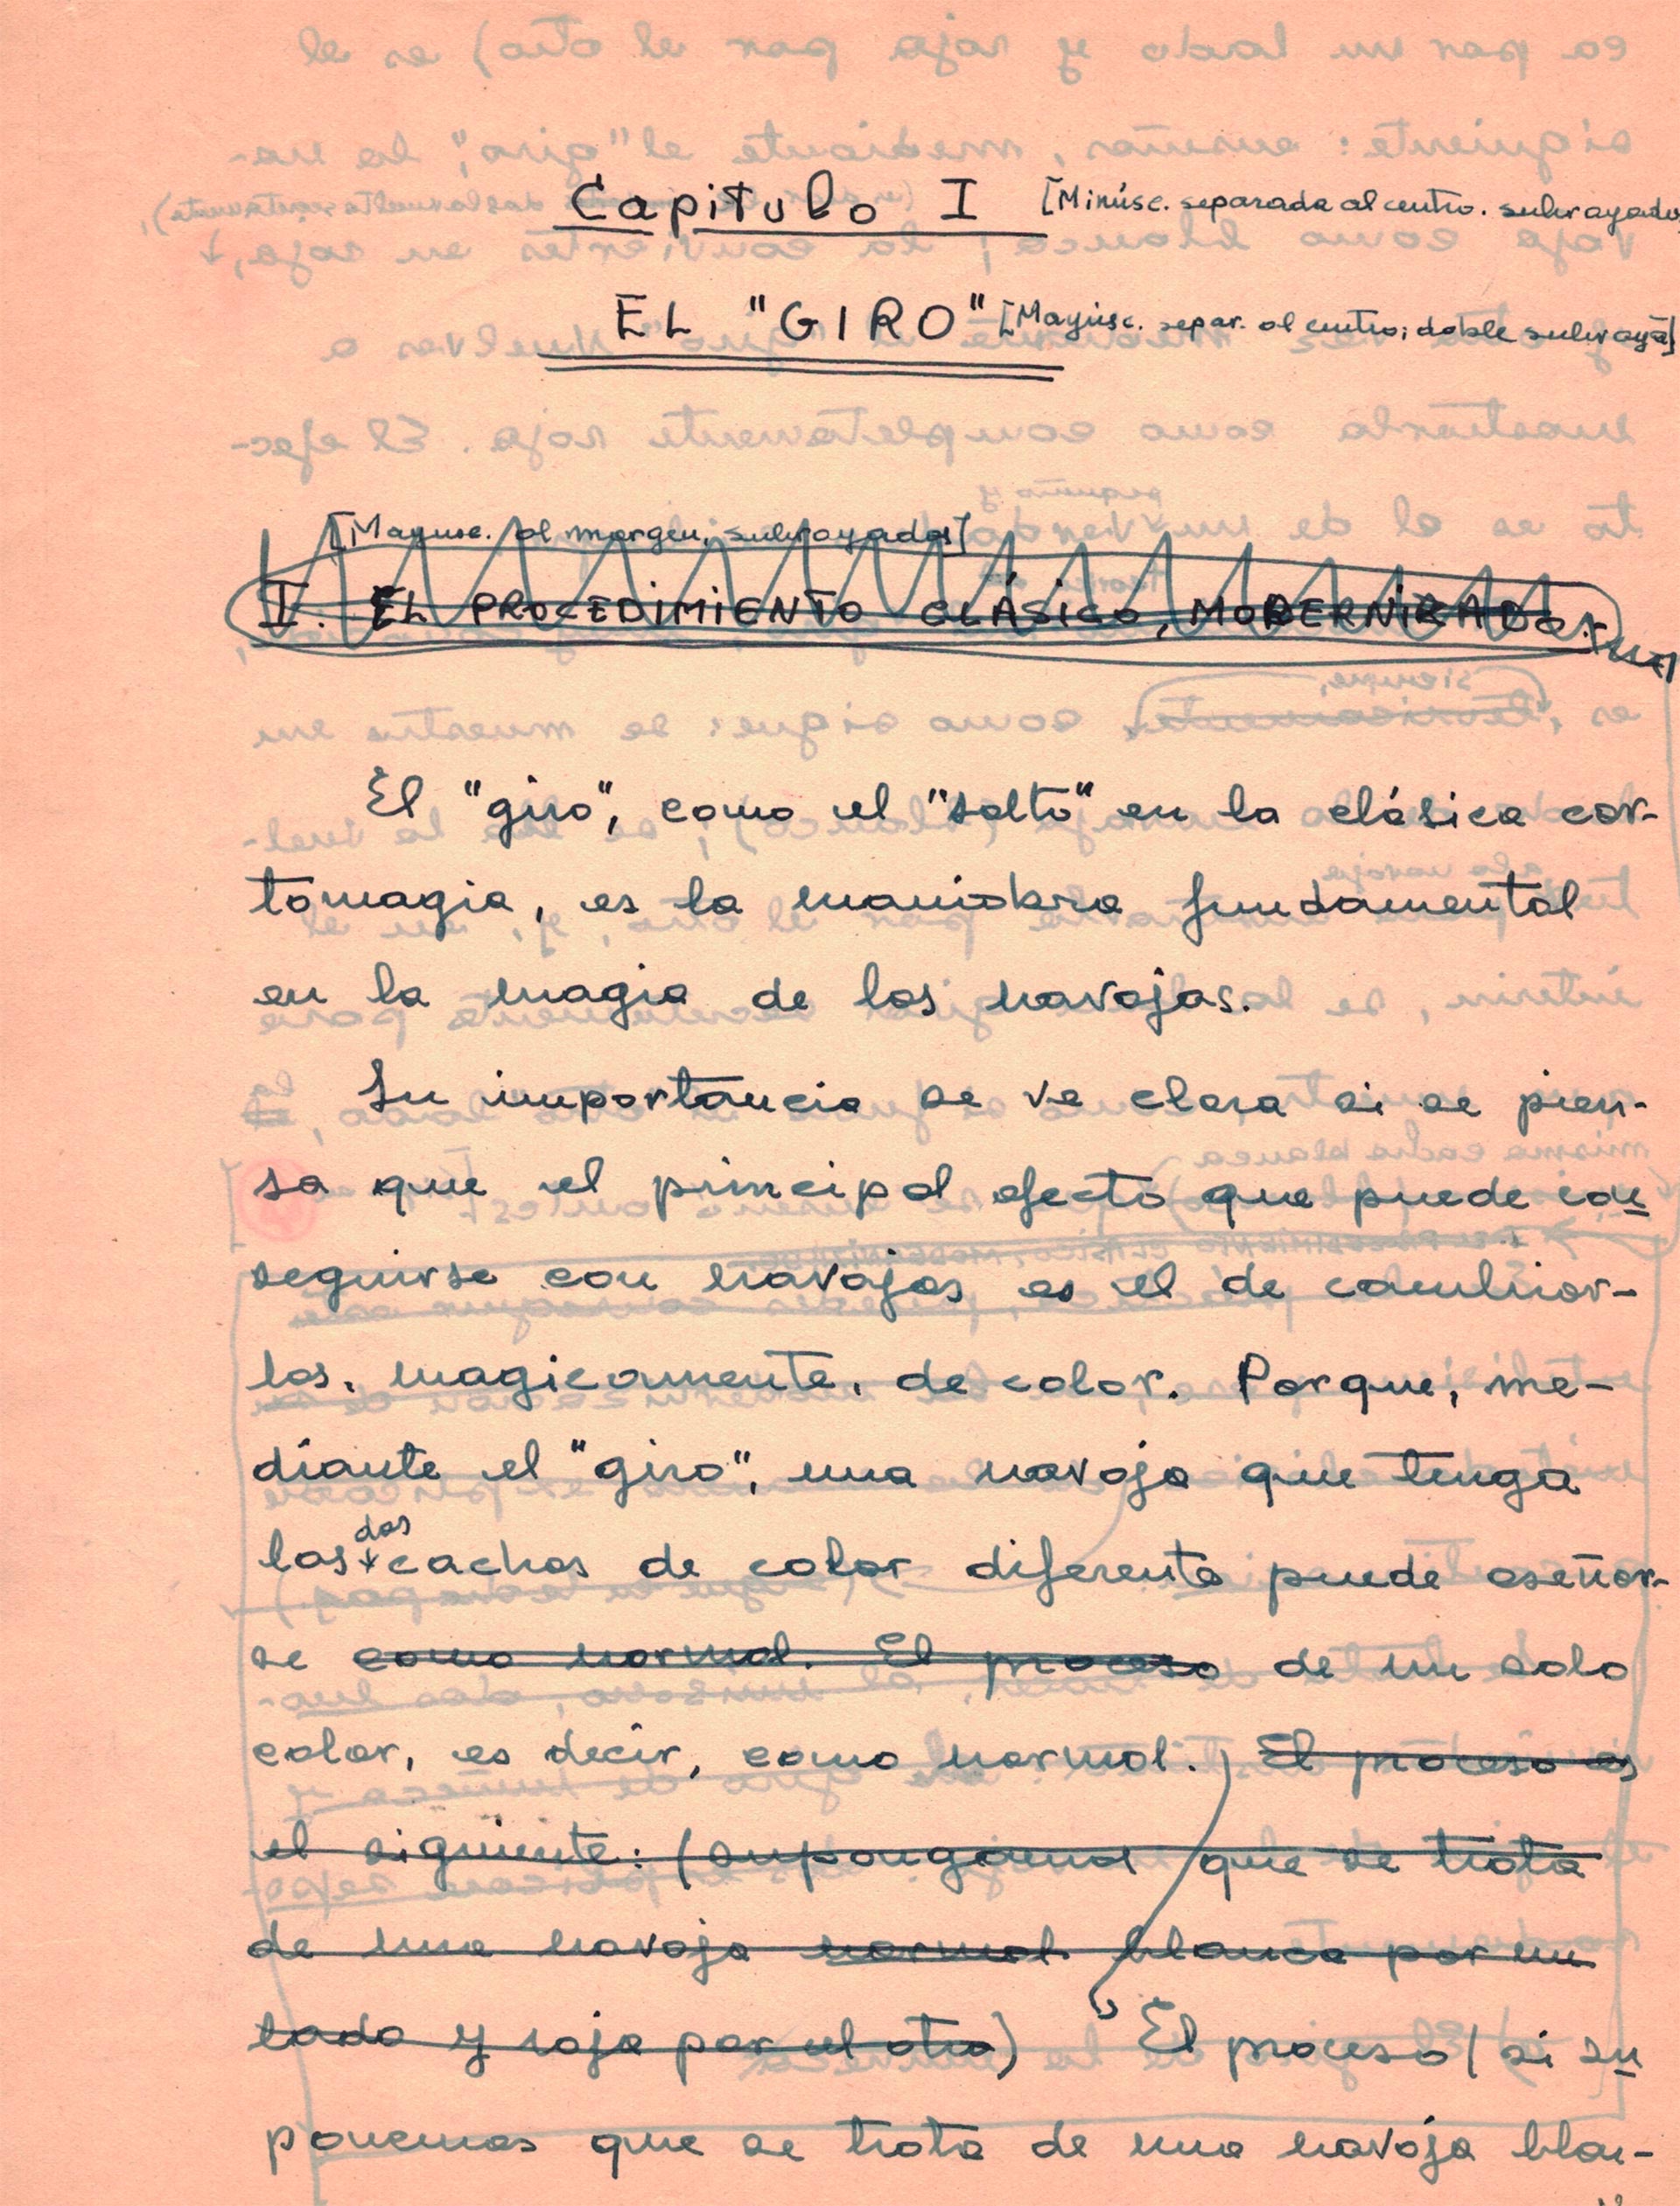 Capitulo I [Minúsc. separada al centro. subrayado]
EL "GIRO" [Mayúsc. separ. al centro; doble subraya]
[Mayusc. al margen, subrayados]
I. EL PROCEDIMIENTO CLÁSICO, MODERNIZADO.-
El "giro", como el "salto" en la clásica car-
tomagia, es la maniobra fundamental
en la magia de las navajas.
Su importancia se ve clara si se pien-
sa que el principal efecto que puede con
seguirse con navajas es el de cambiar-
las, magicamente, de color. Porque, me-
diante el "giro", una navaja que tenga
dos
las cachas de color diferente puede eseñar-
se como normal. El proceso de un solo
color, es decir, como normal. El proceso es
el siguiente: (supongamos que se trata
de una navaja normal blanca por un
lado y roja por el otro) El proceso (si su
ponemos que se trata de una navaja blan-